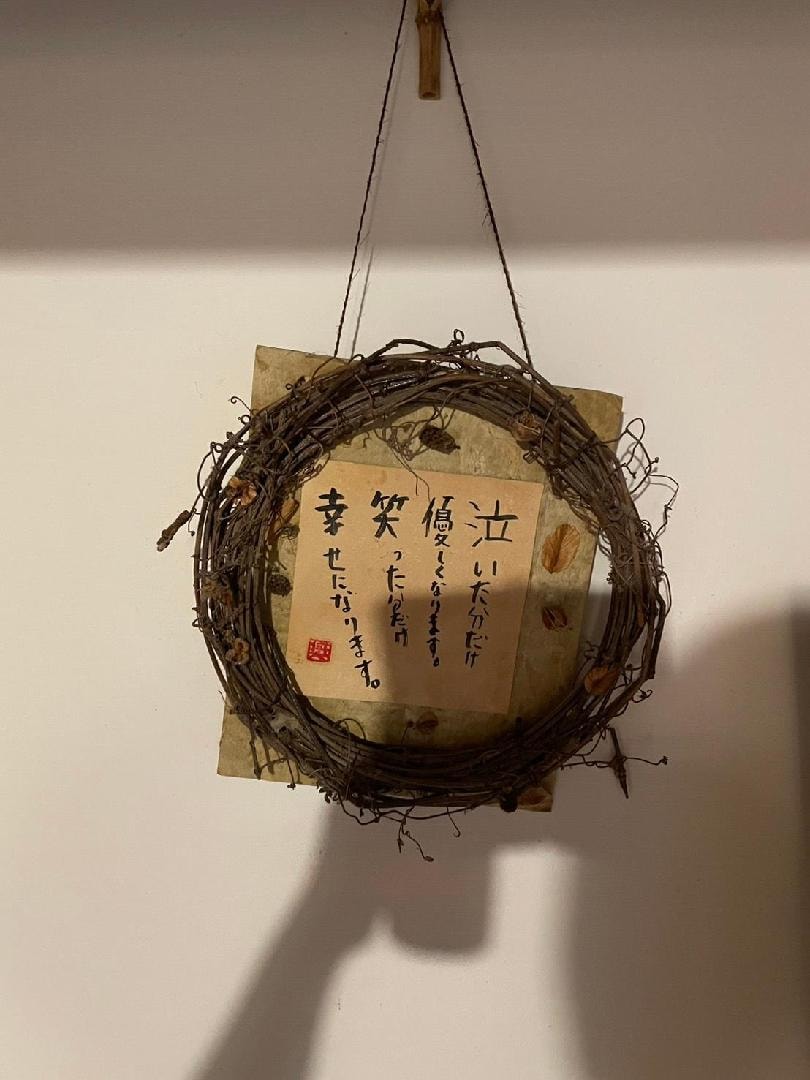 泣いた分だけ
優しくなります。
笑った分だけ
幸せになります。